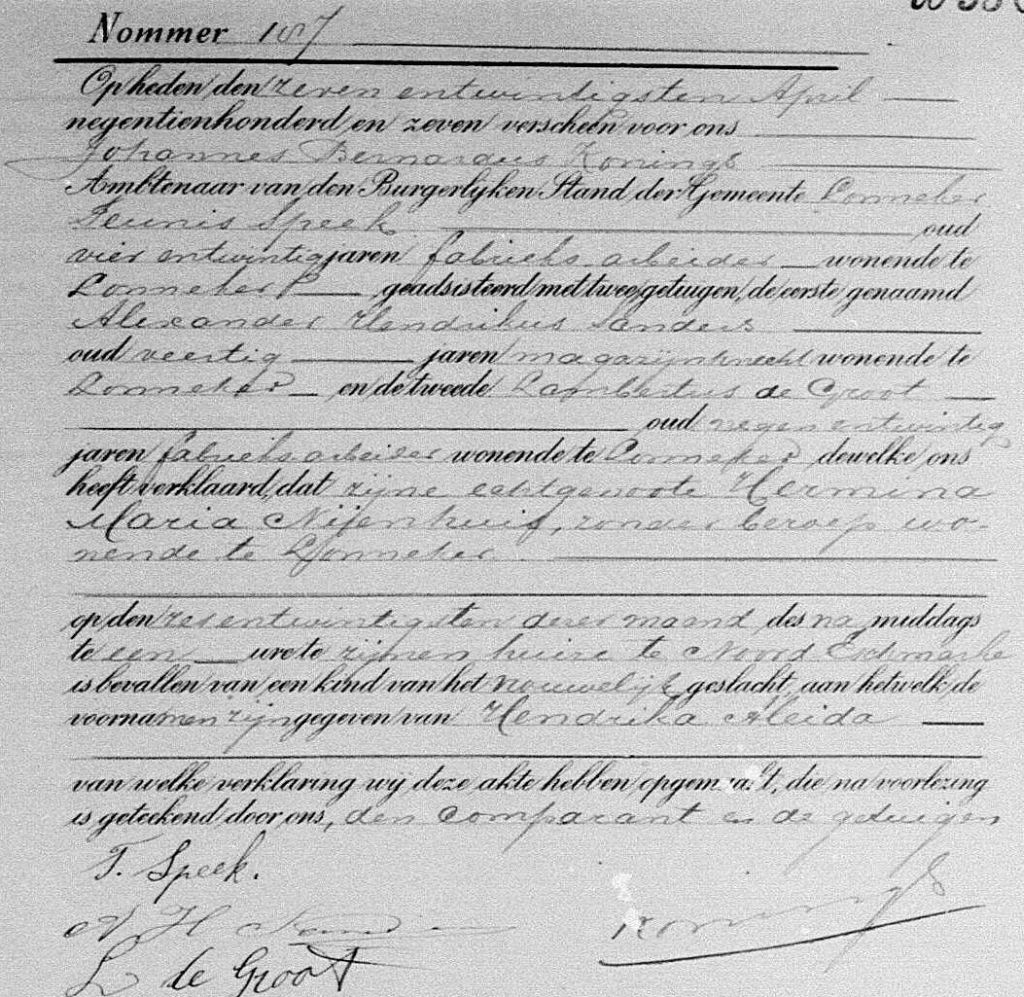 Nommer 187
Op heden den zeven entwintigsten April
negentienhonderd en zeven verscheen voor ons
Johannes Bernardus Konings
Ambtenaar van den Burgerlijken Stand der Gemeente Lonneker
Teunis Speek oud
vier entwintig jaren fabrieks arbeider wonende te
Lonneker geadsisteerd met twee getuigen, de eerste genaamd
Alexander Hendrikus Sanders
oud veertig jaren magazijnknecht wonende te
Lonneker en de tweede Lambertus de Groot
oud negen entwintig
jaren fabrieksarbeider wonende te Lonneker dewelke ons
heeft verklaard, dat zijne echtgenoote Hermina
Maria Nijenhuis, zonder beroep wo-
nende te Lonneker.
op den zesentwintigsten dezer maand des na middags
te een ure te zijnen huize te Noord Eschmarke
is bevallen van een kind van het vrouwelijk geslacht, aan hetwelk de
voornamen zijn gegeven van Hendrika Aleida
van welke verklaring wij deze akte hebben opgemaakt, die na voorlezing
is geteekend door ons, den comparant en de getuigen
T. Speek.
A H Sanders
Konings
L de Groot